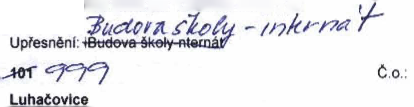 Budova školy - internát
Upřesnění: iBudova školy-nternát
101 999 Č.o.:
Luhačovice